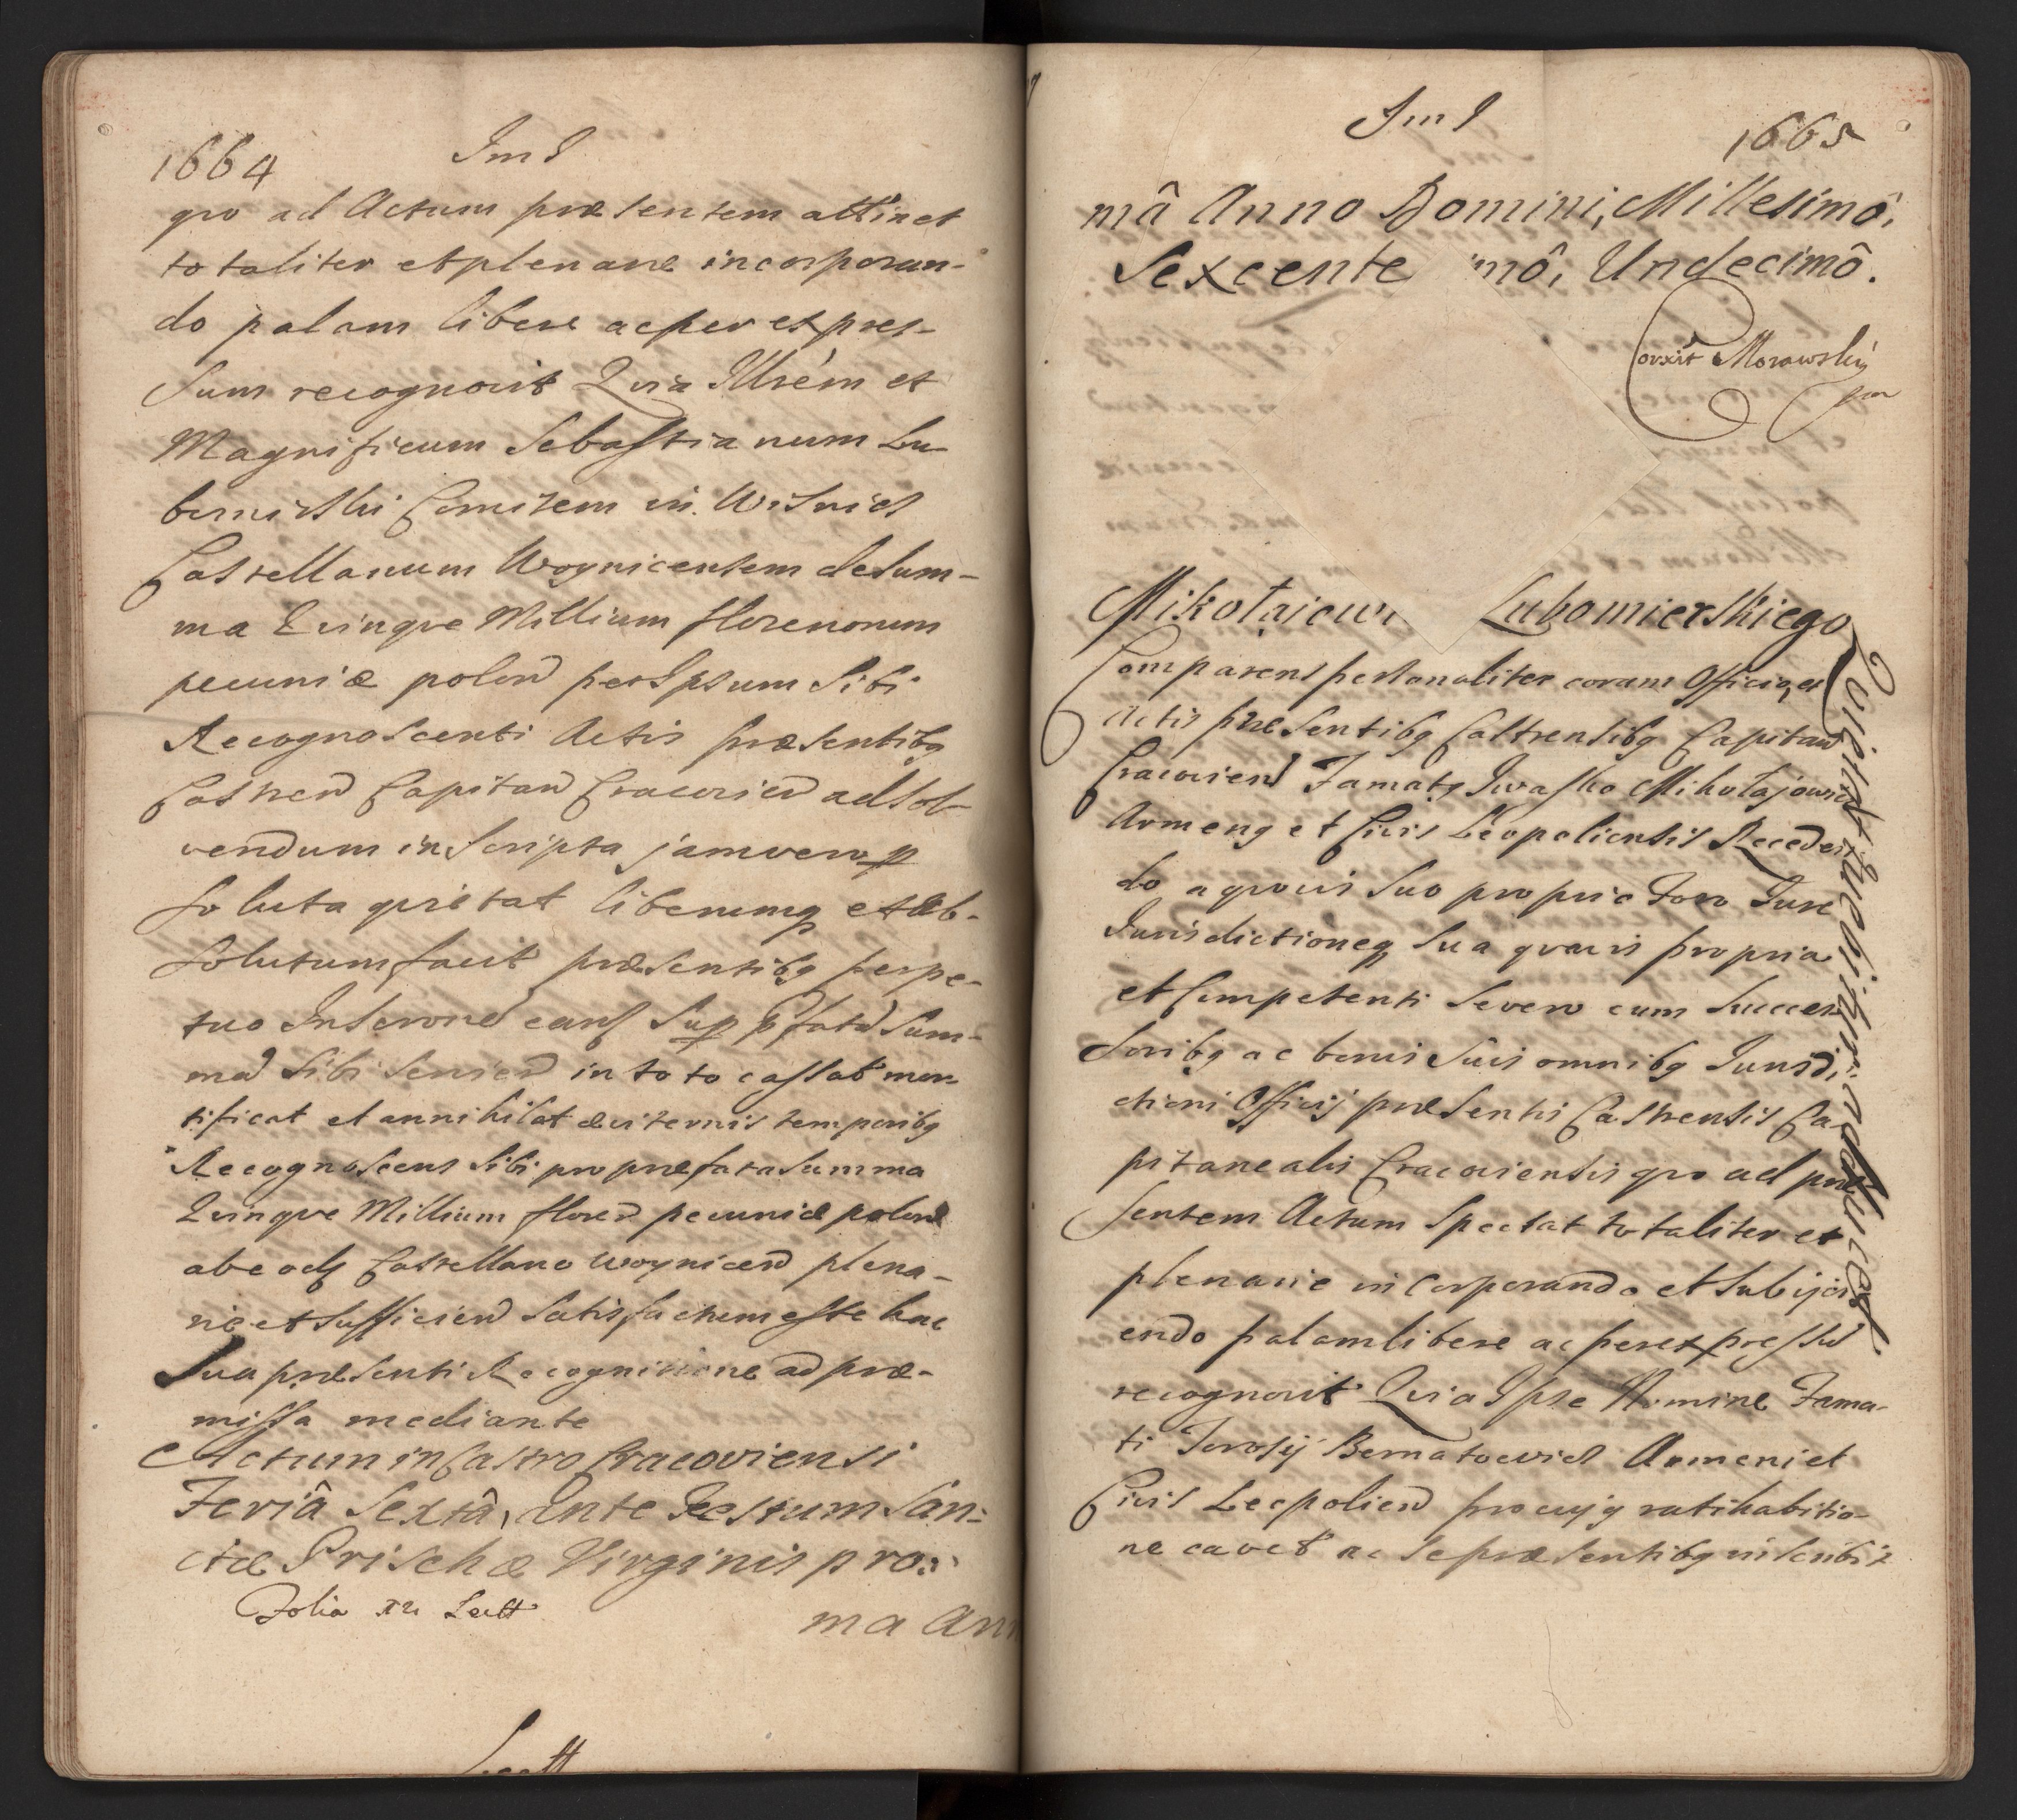 1664
qvo ad Actum præsentem attinet
totaliter et plenarie incorporan-
do palam libere ac per expres-
sum recognovit Qvia Illrem et
Magnificum Sebastianum Lu-
bomirski Comitem in Wisnicz
Castellanum Woynicensem de sum-
ma Qvinqve Millium florenorum
pecuniæ polon per Ipsum Sibi
Recognoscenti Actis præsentibq
Castren Capitan Cracovien adsol-
vendum inscripta jam vero p
soluta qvietat liberumq et ab-
solutum facit præsentibq perpe-
tuo Inscrone
mæ Sibi servien in toto cassat mor-
tificat et annihilat æviternis temporibq
Recognoscens Sibi pro præfata summa
Qvinqve Millium floren pecuniæ polon
ab eod Castellano Woynicen plena-
rie et sufficien satisfactum esse hac
Sua præsenti Recognitione ad præ-
missa mediante
Actum in Castro Cracoviensi
Feriâ Sextâ, Ante Festum San-
ctæ Prischæ Virginis proxi-
Folia
ma Ann
1665
mâ Anno Domini, Millesimô,
Sexcente mô, Undecimô.
Corxit Morawskij
Mikołaiowi Lubomierskiego
Qvietat
Comparens personaliter coram Officio, et
Actis præsentibq Castrensibq Capitan
Cracovien Famatq Iwasko Mikołajowicz
Armenq et Civis Leopoliensis Receden-
do a qvovis suo proprio Foro Jure
Jurisdictioneq sua qvavis propria
et Competenti se vero cum Succes-
soribq ac bonis suis omnibq Jurisdi-
ctioni Officij præsentis Castrensis Ca-
pitanealis Cracoviensis qvo ad præ-
sentem Actum Spectat totaliter et
plenarie incorporando et Subijci-
endo palam libere ac per expressū
recognovit Qvia Ipse Nomine Fama-
ti Bernatowicz Armeni et
Civis Leopolien pro cujq ratihabitio-
ne cavet ac se præsentibq inscribit